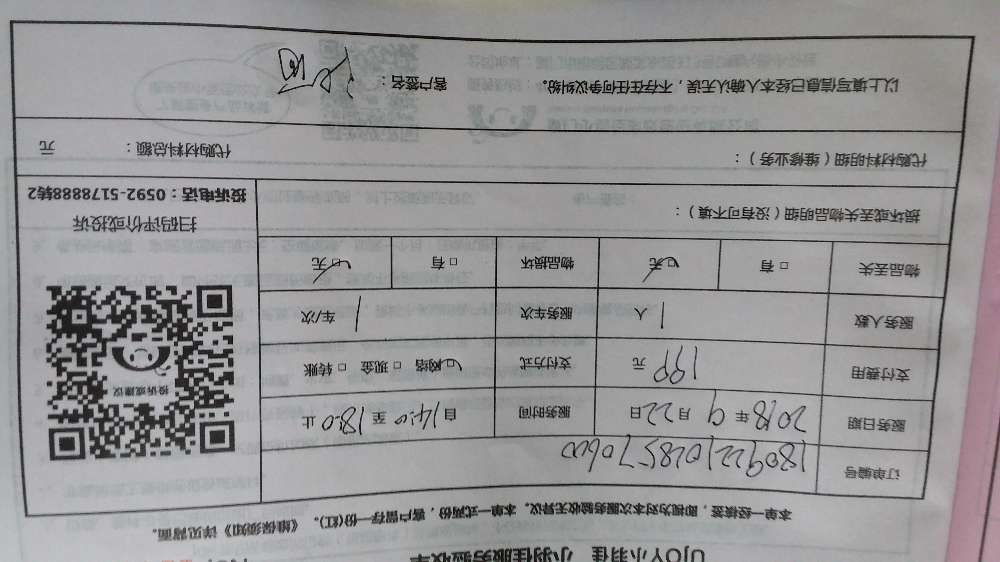 UJOY小羽佳 小羽佳服务验收单
本单一经核签，即视为对本次服务验收无异议。本单一式两份，客户留存一份(红)。《维保须知》详见背面。
订单编号
服务日期 2018年9月22日 服务时间 自14:0至18:0止
支付费用 199元 支付方式 ☑网络 □现金 □转账
服务人数 1人 服务车次 1车/次
物品丢失 □有 ☑无 物品损坏 □有 ☑无
投诉或建议
扫码评价或投诉
投诉电话：0592-5178888转2
损坏或丢失物品明细（没有可不填）：
代购材料明细（维修业务）：
代购材料总额： 元
以上填写信息已经本人确认无误，不存在任何争议纠纷。 客户签名：